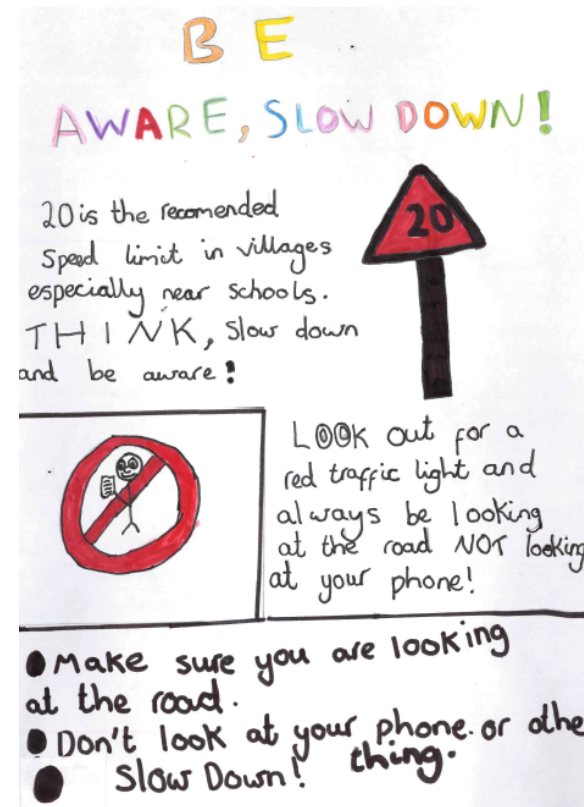 BE
AWARE, SLOW DOWN!
20 is the recomended
Speed limit in villages
especially near schools.
THINK, Slow down
and be aware!
20
LOOK out for a
red traffic light and
always be looking
at the road NOT looking
at your phone!
Make sure you are looking
at the road.
Don't look at your phone. or othe
thing.
Slow Down!